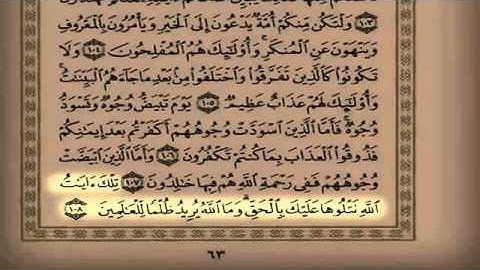 ﴿١٠٣﴾ وَلْتَكُن مِّنكُمْ أُمَّةٌ يَدْعُونَ إِلَى الْخَيْرِ وَيَأْمُرُونَ بِالْمَعْرُوفِ
وَيَنْهَوْنَ عَنِ الْمُنكَرِ ۚ وَأُولَٰئِكَ هُمُ الْمُفْلِحُونَ ﴿١٠٤﴾ وَلَا
تَكُونُوا كَالَّذِينَ تَفَرَّقُوا وَاخْتَلَفُوا مِن بَعْدِ مَا جَاءَهُمُ الْبَيِّنَٰتُ ۚ
وَأُولَٰئِكَ لَهُمْ عَذَابٌ عَظِيمٌ ﴿١٠٥﴾ يَوْمَ تَبْيَضُّ وُجُوهٌ وَتَسْوَدُّ
وُجُوهٌ ۚ فَأَمَّا الَّذِينَ اسْوَدَّتْ وُجُوهُهُمْ أَكَفَرْتُم بَعْدَ إِيمَٰنِكُمْ
فَذُوقُوا الْعَذَابَ بِمَا كُنتُمْ تَكْفُرُونَ ﴿١٠٦﴾ وَأَمَّا الَّذِينَ ابْيَضَّتْ
وُجُوهُهُمْ فَفِي رَحْمَةِ اللَّهِ هُمْ فِيهَا خَٰلِدُونَ ﴿١٠٧﴾ تِلْكَ ءَايَٰتُ
اللَّهِ نَتْلُوهَا عَلَيْكَ بِالْحَقِّ ۗ وَمَا اللَّهُ يُرِيدُ ظُلْمًا لِّلْعَٰلَمِينَ ﴿١٠٨﴾
٦٣